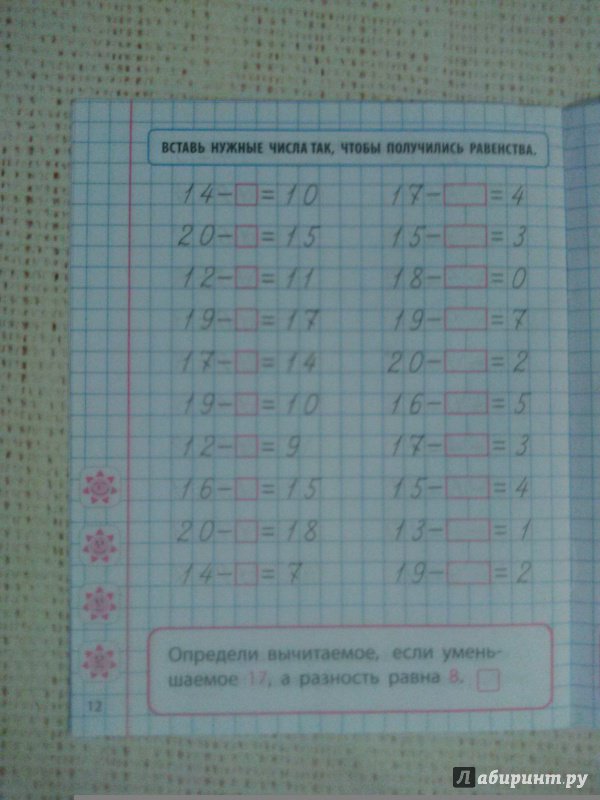 ВСТАВЬ НУЖНЫЕ ЧИСЛА ТАК, ЧТОБЫ ПОЛУЧИЛИСЬ РАВЕНСТВА.
14-□=10 17-□=4
20-□=15 15-□=3
12-□=11 18-□=0
19-□=17 19-□=7
17-□=14 20-□=2
19-□=10 16-□=5
12-□=9 17-□=3
16-□=15 15-□=4
20-□=18 13-□=1
14-□=7 19-□=2
Определи вычитаемое, если умень-
шаемое 17, а разность равна 8. □
12
Лабиринт.ру